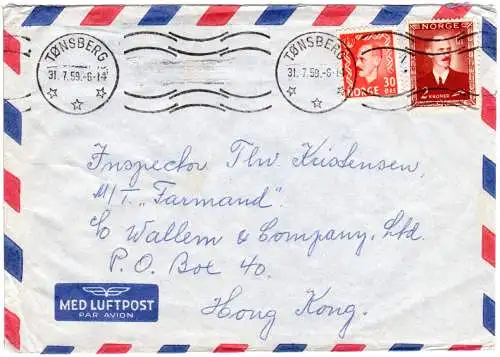 TØNSBERG
31.7.59.-6-14
TØNSBERG
31.7.59.-6-14
30
NORGE
ØRE
NORGE
2
KRONER
Inspector Thv Kristensen,
M/T. „Farmand"
c/o Wallem & Company, Ltd.
P.O. Box 40.
Hong Kong.
MED LUFTPOST
PAR AVION